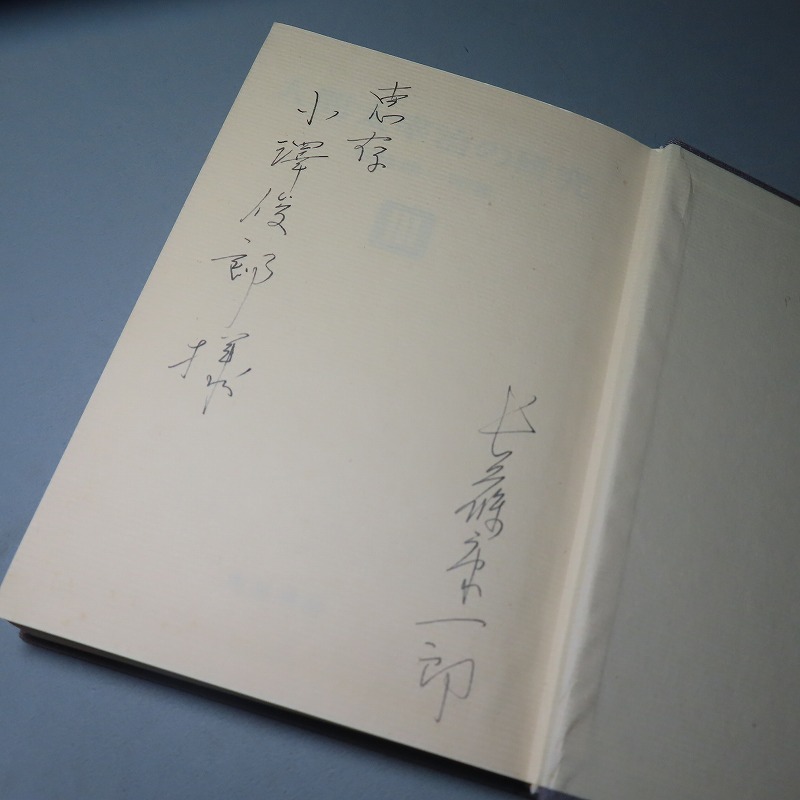 恵存
小澤俊郎様
長篠康一郎